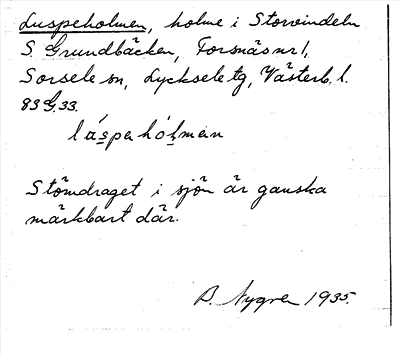 Luspeholmen, holme i Storvindeln
S. Grundbäcken, Forsnäs nr 1,
Sorsele sn, Lycksele tg, Västerb. l.
83G.33.
Stömdraget i sjön är ganska
märkbart där.
B. Nygren 1935.